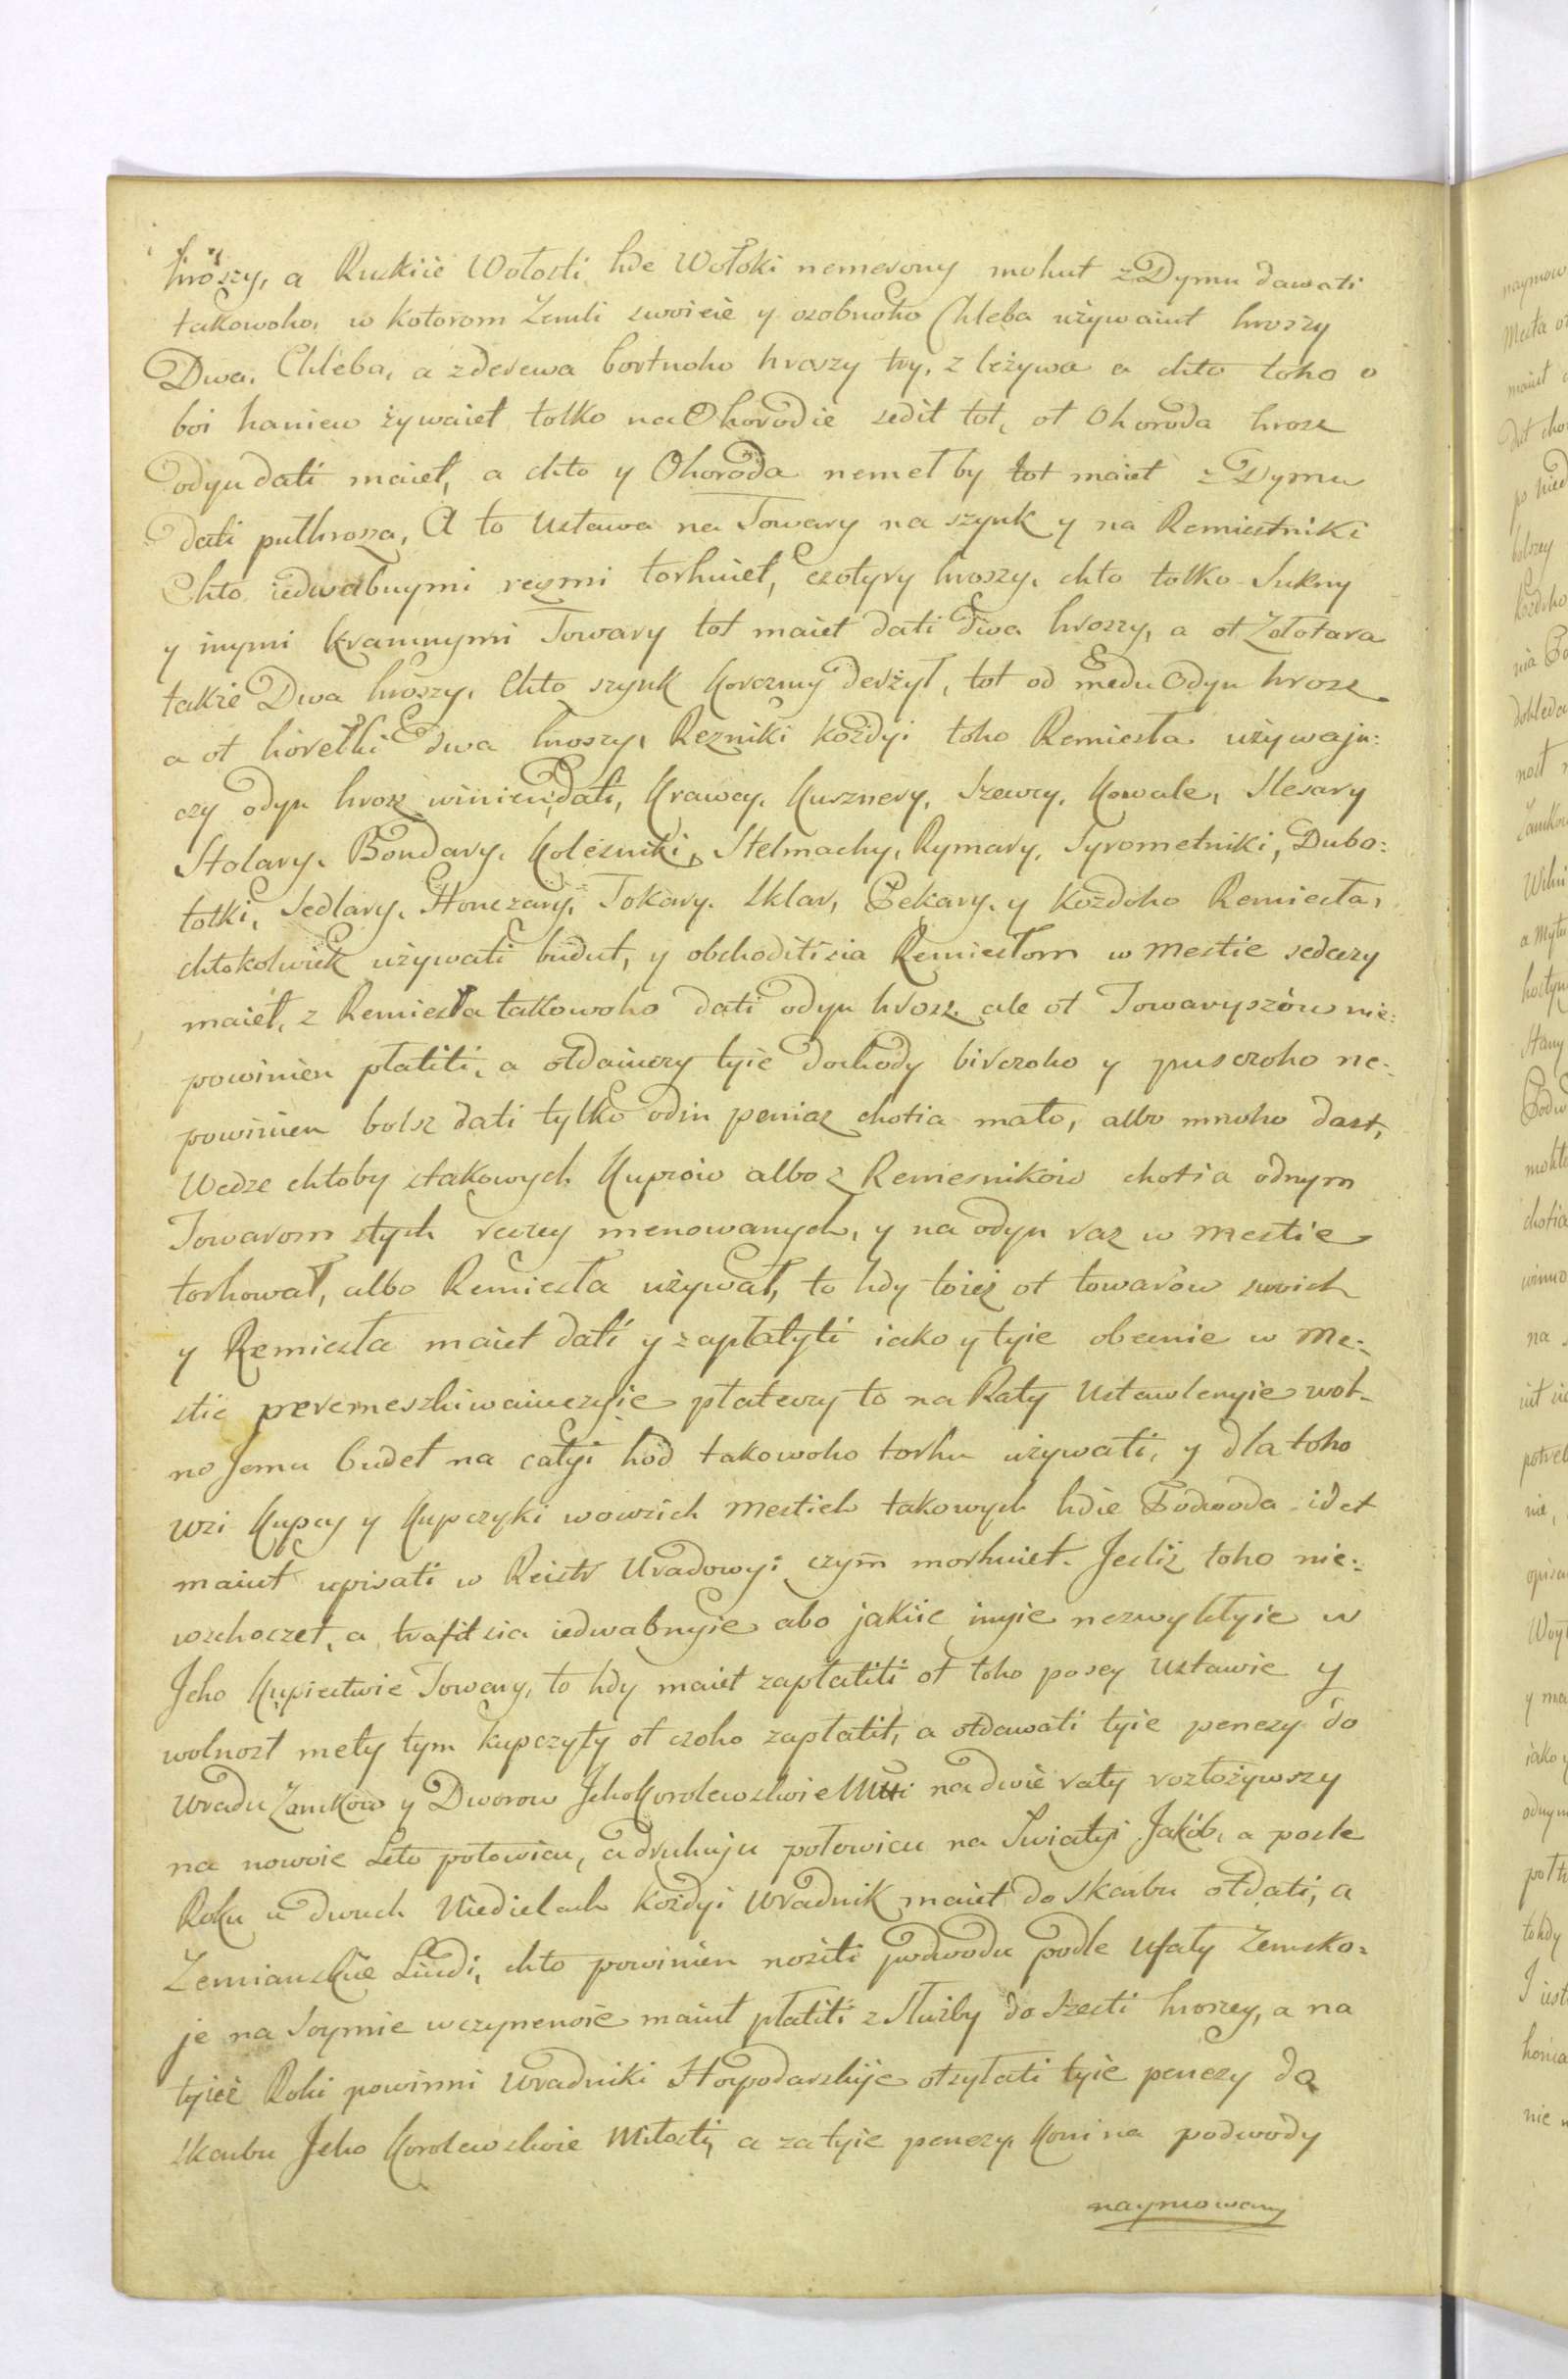 hroszy, a Ruskiie Wołosti hde Wołoki nemerony mohut z Dymu dawati
takowoho, w kotorom Zemli swoieie y osobnoho Chleba używaiut hroszy
Dwa. Chleba, a zderewa bortnoho hroszy try, z leżywa a chto toho o
boi haniew żywaiet tolko na Ohorodie sedit tot, ot Ohoroda hrosz
odyn dati maiet, a chto y Ohoroda nemel by tot maiet z Dymu
dati puthrosza, A to Ustawa na Towary na szynk y na Remiestniki
Chto iedwabnymi reczmi torhuiet, czotyry hroszy, chto tolko Sukny
y inymi Kramnymi Towary tot maiet dati dwa hroszy, a ot Zołotara
takze Dwa hroszy, Chto szynk Korczmy derżyt, tot od medu Odyn hrosz
a ot horełki dwa hroszy, Rezniki kożdyi toho Remiesta używaju:
czy odyn hrosz winien dati, Krawcy, Kusznery, Szewcy, Kowale, Slesary
Stolary, Bondary, Kolesniki, Stelmachy, Rymary, Syrometniki, Dubo:
tolki, Sedlary, Honczary, Tokary, Sklar, Pekary, y kożdoho Remiesta,
chtokolwiek używati budut, y obchoditisia Remiestom w mestie sedaczy
maiet, z Remiesta takowoho dati odyn hrosz, ale ot Towaryszów nie:
powinien płatiti, a otdaiuczy tyie dochody birczoho y pusczoho ne:
powinien bolsz dati tylko odin peniaz chotia mało, albo mnoho dast,
Wedze chtoby stakowych Kupców albo z Remesników chotia odnym
Towarom stych reczey menowanych, y na odyn raz w mestie
torhował, albo Remiesta używał, to hdy toież ot towarów swoich
y Remiesta maiet dati y zapłatyti iako y tyie obecnie w me:
stie peremeszkiwaiuczyie płateczy to na Raty Ustawlenyie wol-
no Jemu budet na całyi hod takowoho torhu używati, y dla toho
wsi Kupcy y Kupczyki wowsich mestich takowych hdie Podwoda idet
maiut upisati w Reiestr Uradowyi czym morhuiet. Jesliż toho nie:
wschoczet, a trafit sia iedwabnyie abo jakiie inyie nezwykłyie w
Jeho Kupiectwie Towary, to hdy maiet zapłatiti ot toho posey Ustawie y
wolnost mety tym kupczyty ot czoho zapłatit, a otdawati tyie penezy do
Uradu Zamków y Dworow Jeho Korolewskoie Mti na dwie raty rozłożywszy
na nowoie Leto połowicu, a druhuju połowicu na Swiatyi Jakób, a posle
Roku u dwuch Niedielach kożdyi Uradnik maiet do skarbu otdati, a
Zemianskie Liudi, chto powinien nositi podwodu podle Ufały Zemsko=
je na Soymie uczynenoie maiut płatiti z Służby do Szesti hroszey, a na
tyież Roki powinni Uradniki Hospodarskije otsyłati tyie penezy do
skarbu Jeho Korolewskoie Miłosti, a za tyie penezy Koni na podwody
naymowany